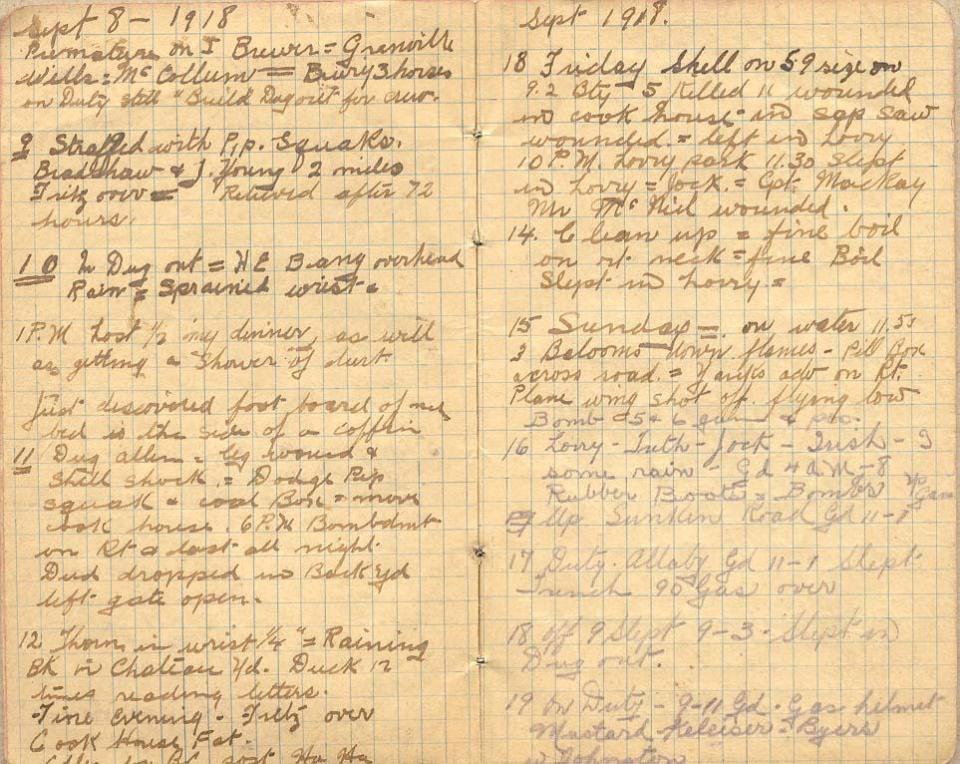 Sept 8 - 1918
Premature on I Brewer = Granville
Wells = McCollum = Bury 3 horses
on Duty still "Build Dugout for crew.
9 Straffed with Pip. Squaks.
Bradshaw & J. Young 2 miles
Fritz over = Relieved after 72
hours.
10 In Dug out = HE Bang overhead
Rain = Sprained wrist =
1 P.M Lost 1/2 my dinner, as well
as getting a shower of dirt
Just discovered foot board of my
bed is the side of a coffin
11 Dug allen = leg wound &
shell shock. = Dodge Pip
squak & coal Box = move
cook house. 6 P.M Bombdmt
on Rt & last all night.
Dud dropped in Back yd
left gate open.
12 Thorn in wrist 1/4" = Raining
BK in Chateau Yd. Duck 12
times reading letters.
Fine Evening - Fritz over
Cook House Fat.
BC post Ha Ha
Sept 1918.
13 Friday Shell on 5.9 size on
9.2 Bty - 5 Killed 11 wounded
in cook house - in sap saw
wounded. = left in Lorry
10 P.M. Lorry park 11.30 Slept
in Lorry = Jock. = Cpt. Mackay
Mr McNiel wounded.
14. Clean up = fine boil
on rt. neck = fine Boil
Slept in Lorry. =
15 Sunday = on water 11.55
3 Baloons down flames - Pill Box
across road. = 7 adv on Rt.
Plane wing shot off. flying low
Bomb 5 & 6 &
16 Lorry - Tuth - Jock - Irish - 3
some rain - Gd 4 A.M - 8
Rubber Boots = Bombs Gas
Up Sunken Road Gd 11-1
17 Duty. Allaby Gd 11-1 Slept.
Trench 90 Gas over
18 off 9 Slept 9-3. Slept in
Dug out.
19 On Duty - 9-11 Gd. Gas helmet
Mustard - = Byers
Johnston